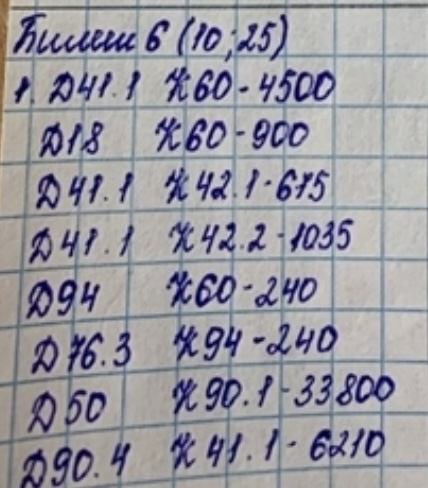 Билет 6 (10; 25)
1. Д41.1 К60 - 4500
Д18 К60 - 900
Д41.1 К42.1 - 675
Д41.1 К42.2 - 1035
Д94 К60 - 240
Д76.3 К94 - 240
Д50 К90.1 - 33800
Д90.4 К41.1 - 6210